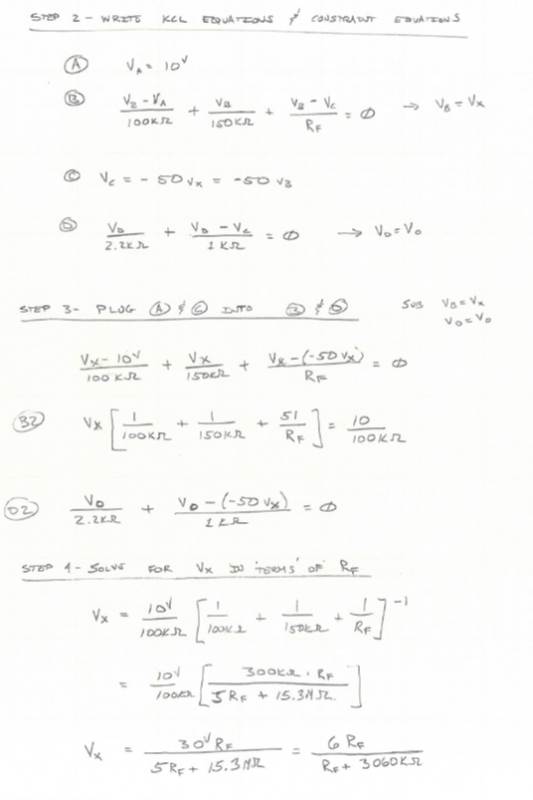 STEP 2 - WRITE KCL EQUATIONS & CONSTRAINT EQUATIONS
Ⓐ V_A = 10^V
Ⓑ (V_B - V_A)/100KΩ + V_B/150KΩ + (V_B - V_C)/R_F = 0 → V_B = V_X
Ⓒ V_C = - 50 V_X = -50 V_B
Ⓓ V_D/2.2KΩ + (V_D - V_C)/1KΩ = 0 → V_D = V_O
STEP 3 - PLUG Ⓐ & Ⓒ INTO Ⓑ & Ⓓ SUB V_B = V_X
V_D = V_O
(V_X - 10^V)/100KΩ + V_X/150KΩ + (V_X - (-50 V_X))/R_F = 0
B2 V_X [1/100KΩ + 1/150KΩ + 51/R_F] = 10/100KΩ
D2 V_O/2.2KΩ + (V_O - (-50 V_X))/1KΩ = 0
STEP 4 - SOLVE FOR V_X IN 'TERMS' OF R_F
V_X = 10^V/100KΩ [1/100KΩ + 1/150KΩ + 1/R_F]^-1
= 10^V/100KΩ [300KΩ · R_F/(5R_F + 15.3MΩ)]
V_X = 30^V R_F/(5R_F + 15.3MΩ) = 6 R_F/(R_F + 3060KΩ)